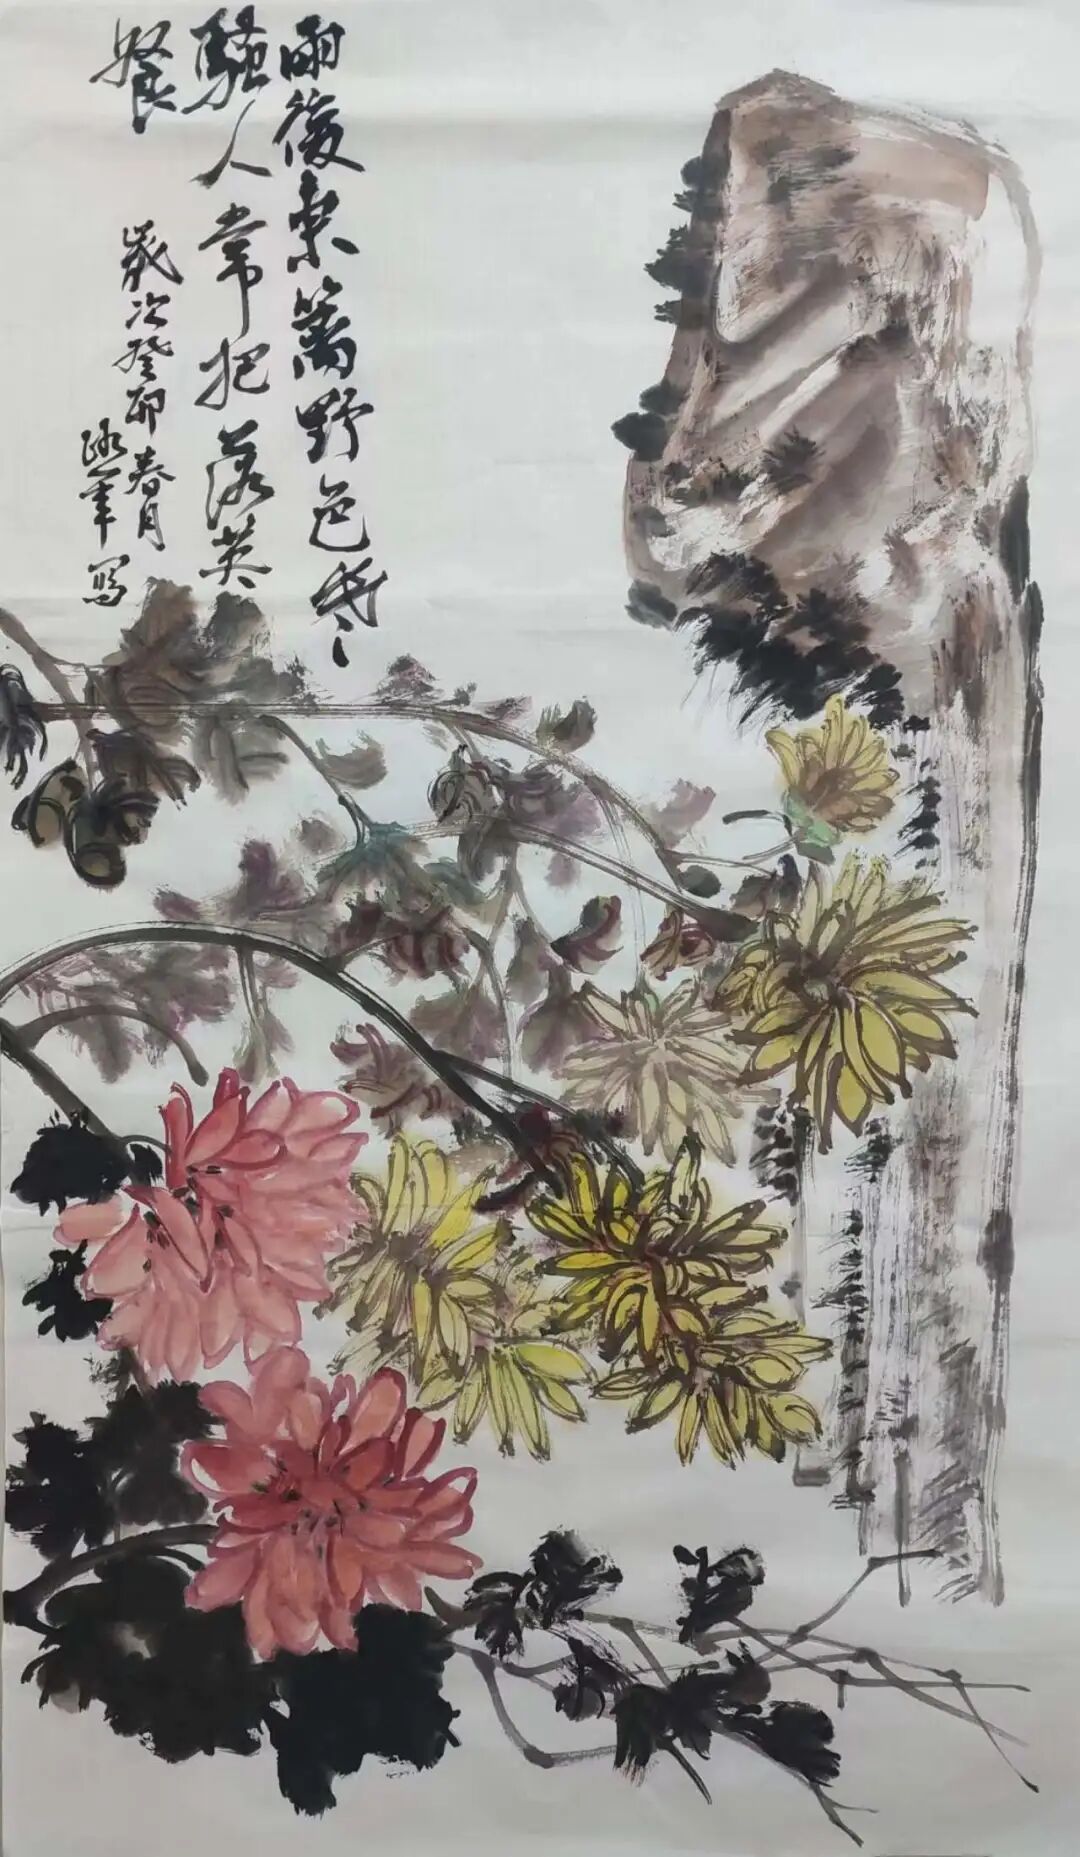 雨後東籬野色寒
騷人常把落英
餐
歲次癸卯春月
寫